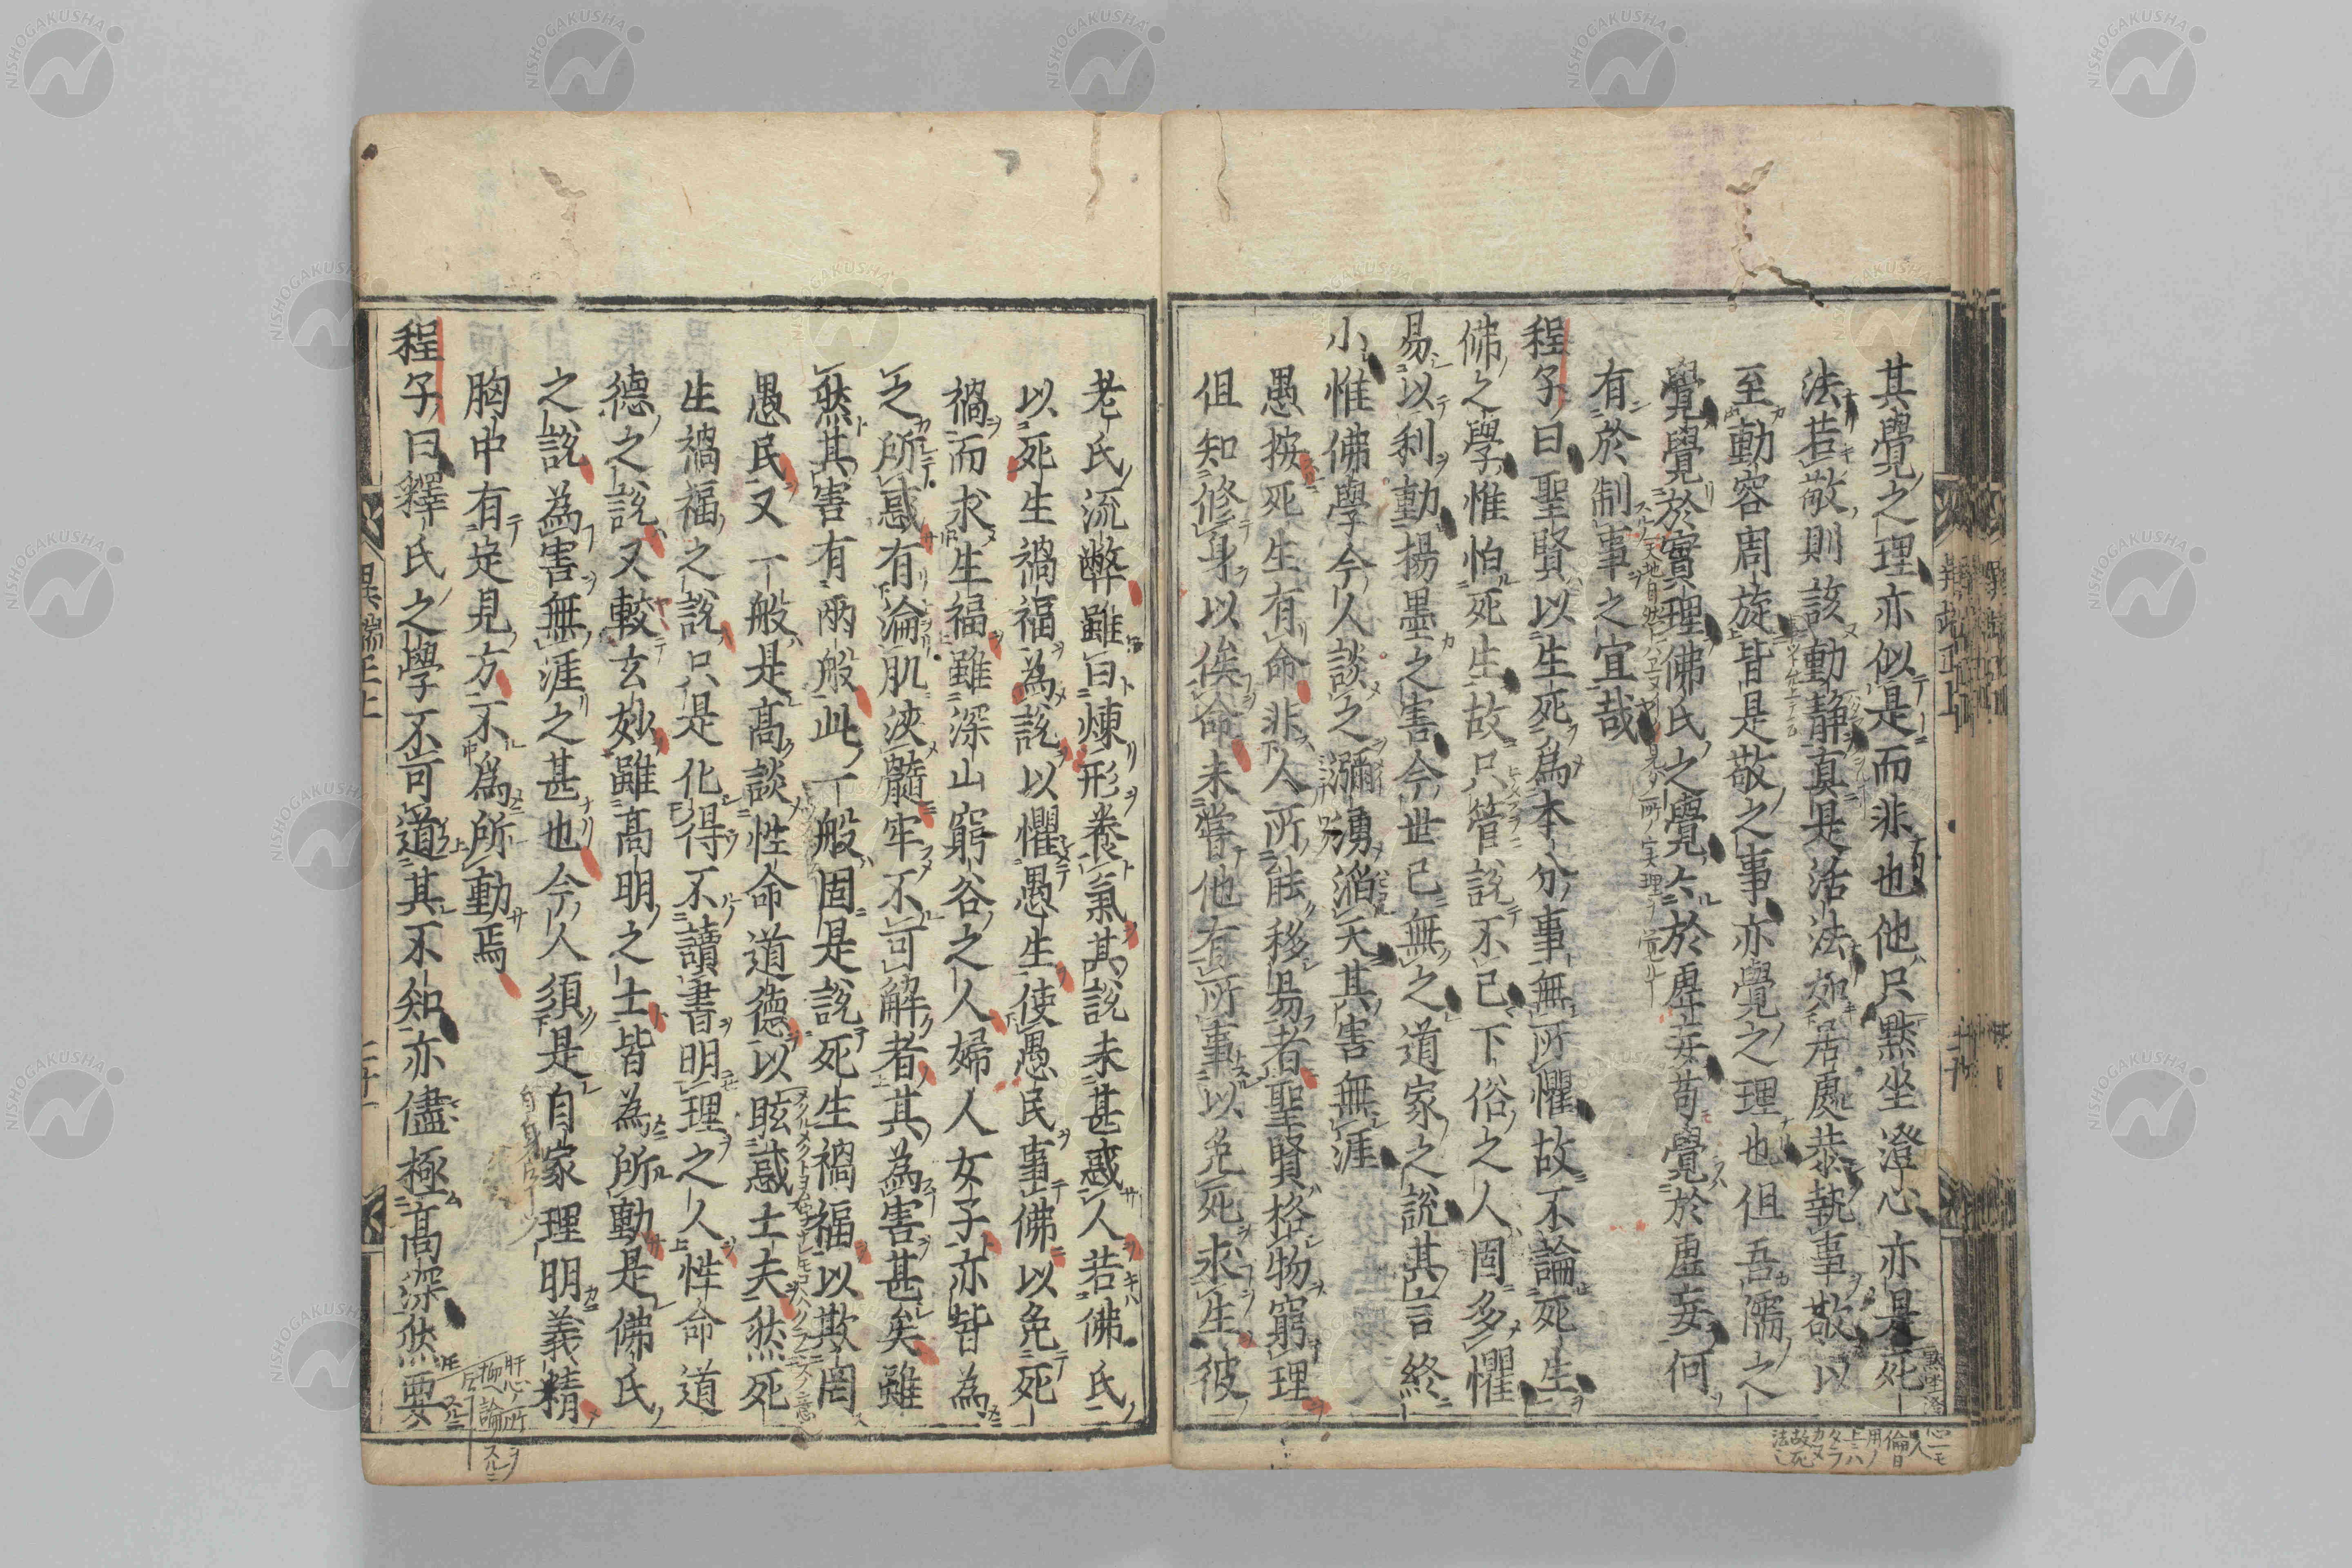 其覺之理亦似是而非也他只默坐澄心亦是死
法若敬則該動靜真是活法如居處恭執事敬以
至動容周旋皆是敬之事亦覺之理也但吾儒之
覺覺於實理佛氏之覺亦於虛妄苟覺於虛妄何
有於制事之宜哉
程子曰聖賢以生死為本分事無所懼故不論死生
佛之學惟怕死生故只管說不已下俗之人固多懼
易以利動揚墨之害今世已無之道家之說其言終
小惟佛學今人談之瀰漫滔天其害無涯
愚按死生有命非人所能移易者聖賢格物窮理
但知修身以俟命未嘗他有所事以免死求生彼
老氏流弊雖曰煉形養氣其說未甚惑人若佛氏
以死生禍福為說以懼愚生使愚民事佛以免死
禍而求生福雖深山窮谷之人婦人女子亦皆為
之所惑有淪肌浹髓牢不可解者其為害甚矣雖
然其害有兩般此一般固是說死生禍福以欺罔
愚民又一般是高談性命道德以眩惑士夫然死
生禍福之說只是化得不讀書明理之人性命道
德之說又較玄妙雖高明之士皆為所動是佛氏
之說為害無涯之甚也今人須是自家理明義精
胸中有定見方不為所動焉
程子曰釋氏之學不可道其不知亦儘極高深然要
異端正上
NISHOGAKUSHA